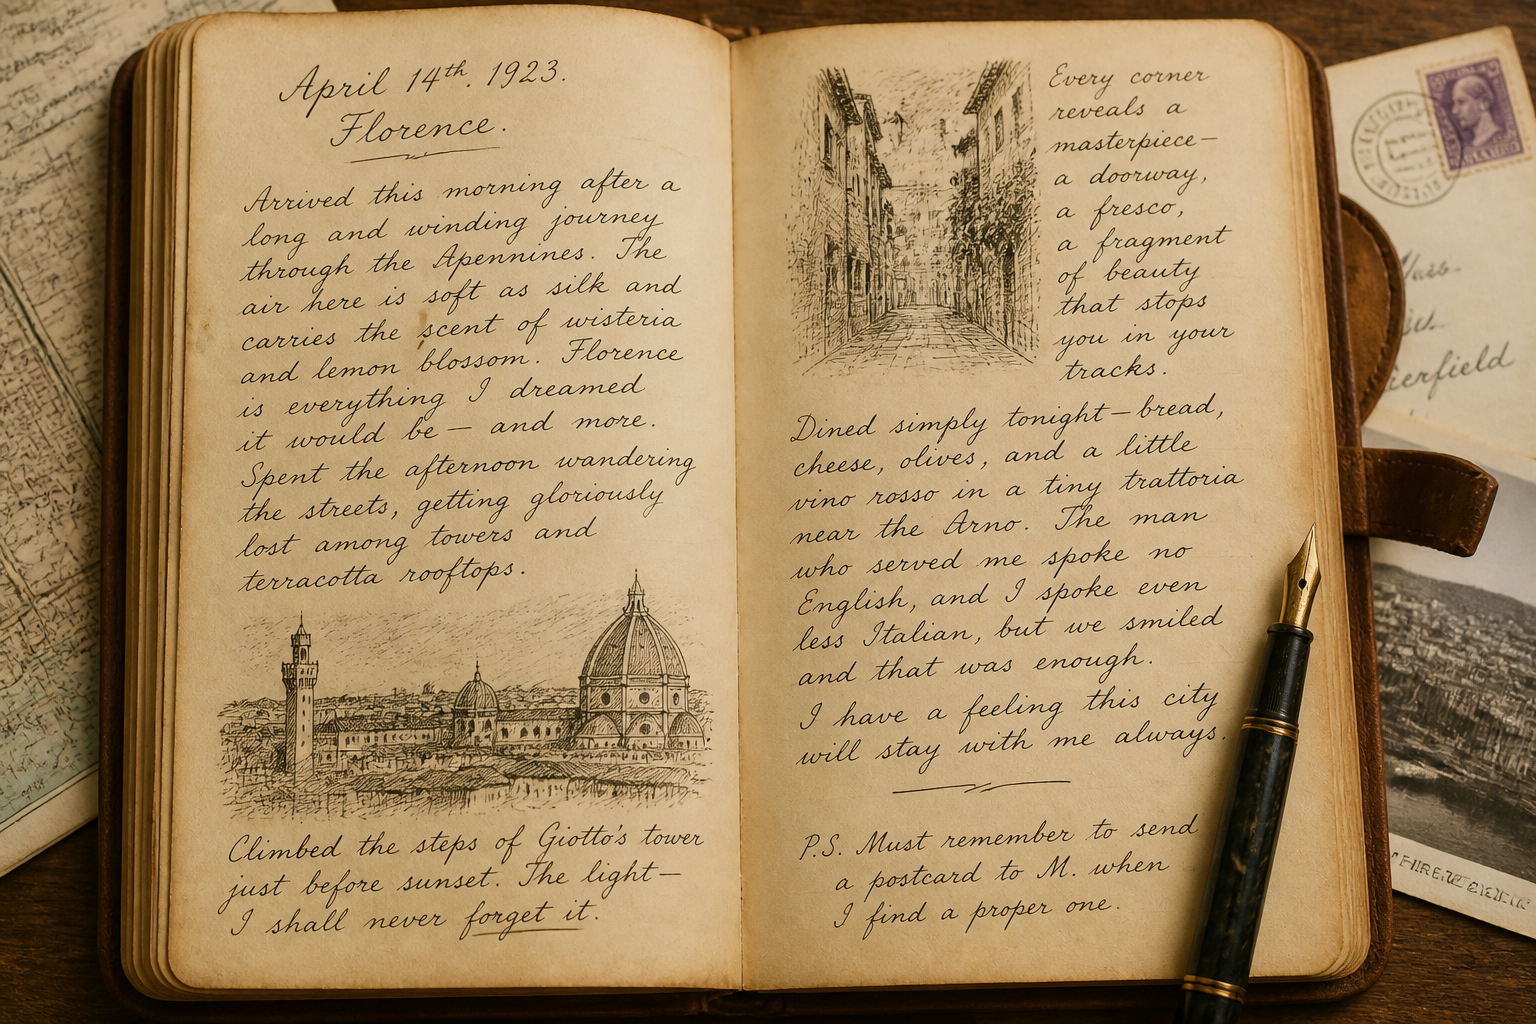 April 14th. 1923.
Florence.
Arrived this morning after a
long and winding journey
through the Apennines. The
air here is soft as silk and
carries the scent of wisteria
and lemon blossom. Florence
is everything I dreamed
it would be — and more.
Spent the afternoon wandering
the streets, getting gloriously
lost among towers and
terracotta rooftops.
Climbed the steps of Giotto's tower
just before sunset. The light—
I shall never forget it.
Every corner
reveals a
masterpiece—
a doorway,
a fresco,
a fragment
of beauty
that stops
you in your
tracks.
Dined simply tonight—bread,
cheese, olives, and a little
vino rosso in a tiny trattoria
near the Arno. The man
who served me spoke no
English, and I spoke even
less Italian, but we smiled
and that was enough.
I have a feeling this city
will stay with me always.
P.S. Must remember to send
a postcard to M. when
I find a proper one.
erfield